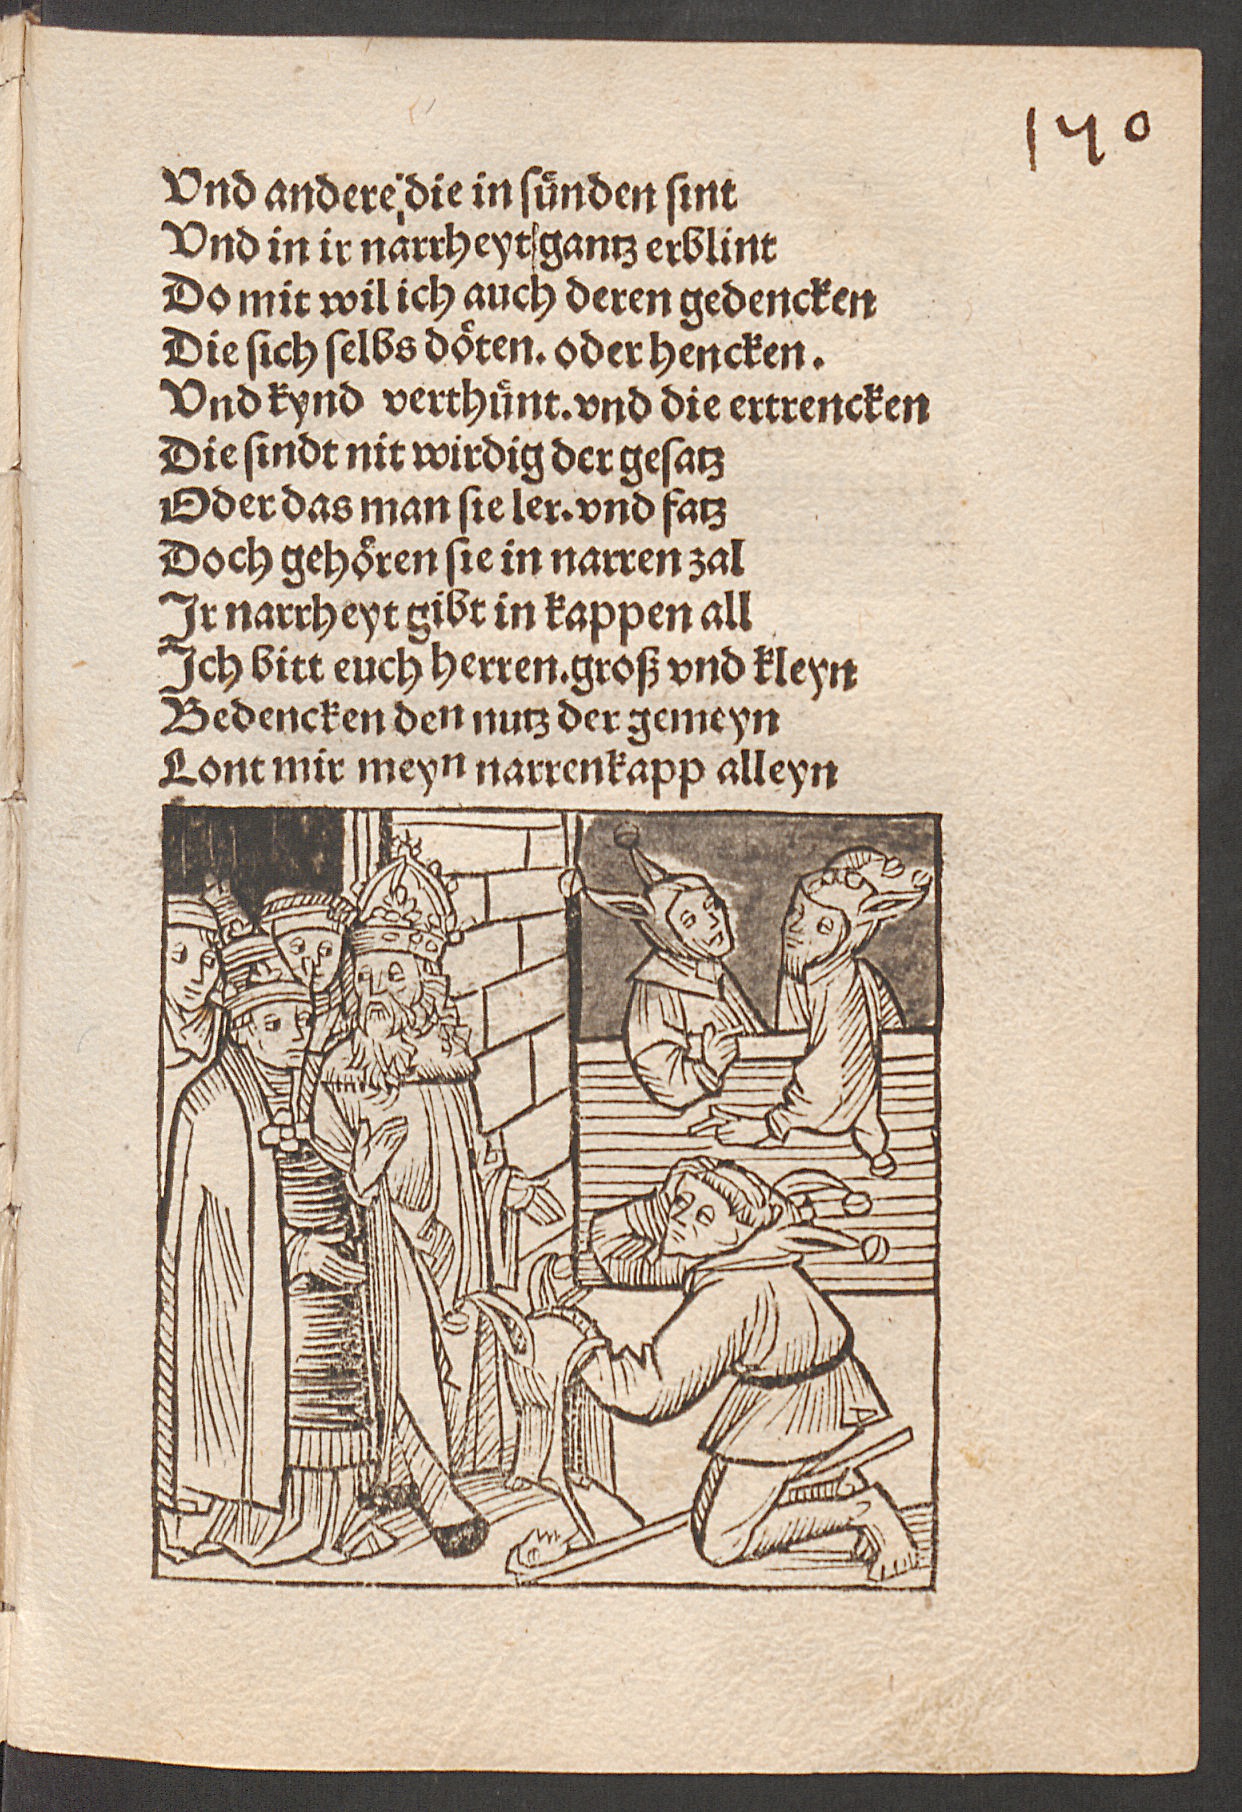 140
Vnd andere die in sünden sint
Vnd in ir narrheyt gantz erblint
Do mit wil ich auch deren gedencken
Die sich selbs döten. oder hencken.
Vnd kynd verthünt. vnd die ertrencken
Die sindt nit wirdig der gesatz
Oder das man sie ler. vnd fatz
Doch gehören sie in narren zal
Jr narrheyt gibt in kappen all
Jch bitt euch herren. groß vnd kleyn
Bedencken den nutz der gemeyn
Lont mir meyn narrenkapp alleyn